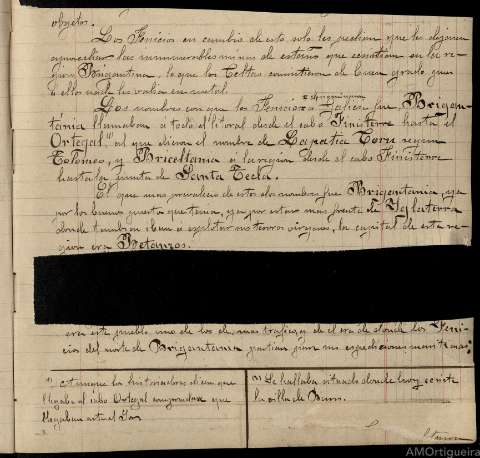 objetos.
Los Fenicios en cambio de esto solo les pedian que les dejasen
aprovechar las innumerables minas de estaño que existian en la re-
gion Brigantina, lo que los Celtas consintieron de buen grado, pues
á ellos nada les valia en metal.
Los nombres con que los Fenicios á Galicia fue Brigan-
tánia llamaban á todo el litoral desde el cabo Finisterre hasta el
Ortegal, al que dieron el nombre de Lapatia Coru segun
Tolomeo, y Bricellania a la region desde el cabo Finisterre
hasta la punta de Santa Tecla.
El que mas prevalecio de estos dos nombres fue Brigantania, ya
por los buenos puertos que tenia, ya por estar mas frente de Yglaterra
donde tambien iban a explotar sus terrenos virgenes, la capital de esta re-
gion era Betanzos.
era este pueblo uno de los de mas trafico, y de él era de donde los Feni-
cios del norte de Brigantania partian para sus espediciones maritimas.
1) Aunque los historiadores dicen que
llegaba al cabo Ortegal aseguradose que
llegaban asta el Eo
(2) Se hallaba situado donde hoy existe
la villa de
AMOrtigueira